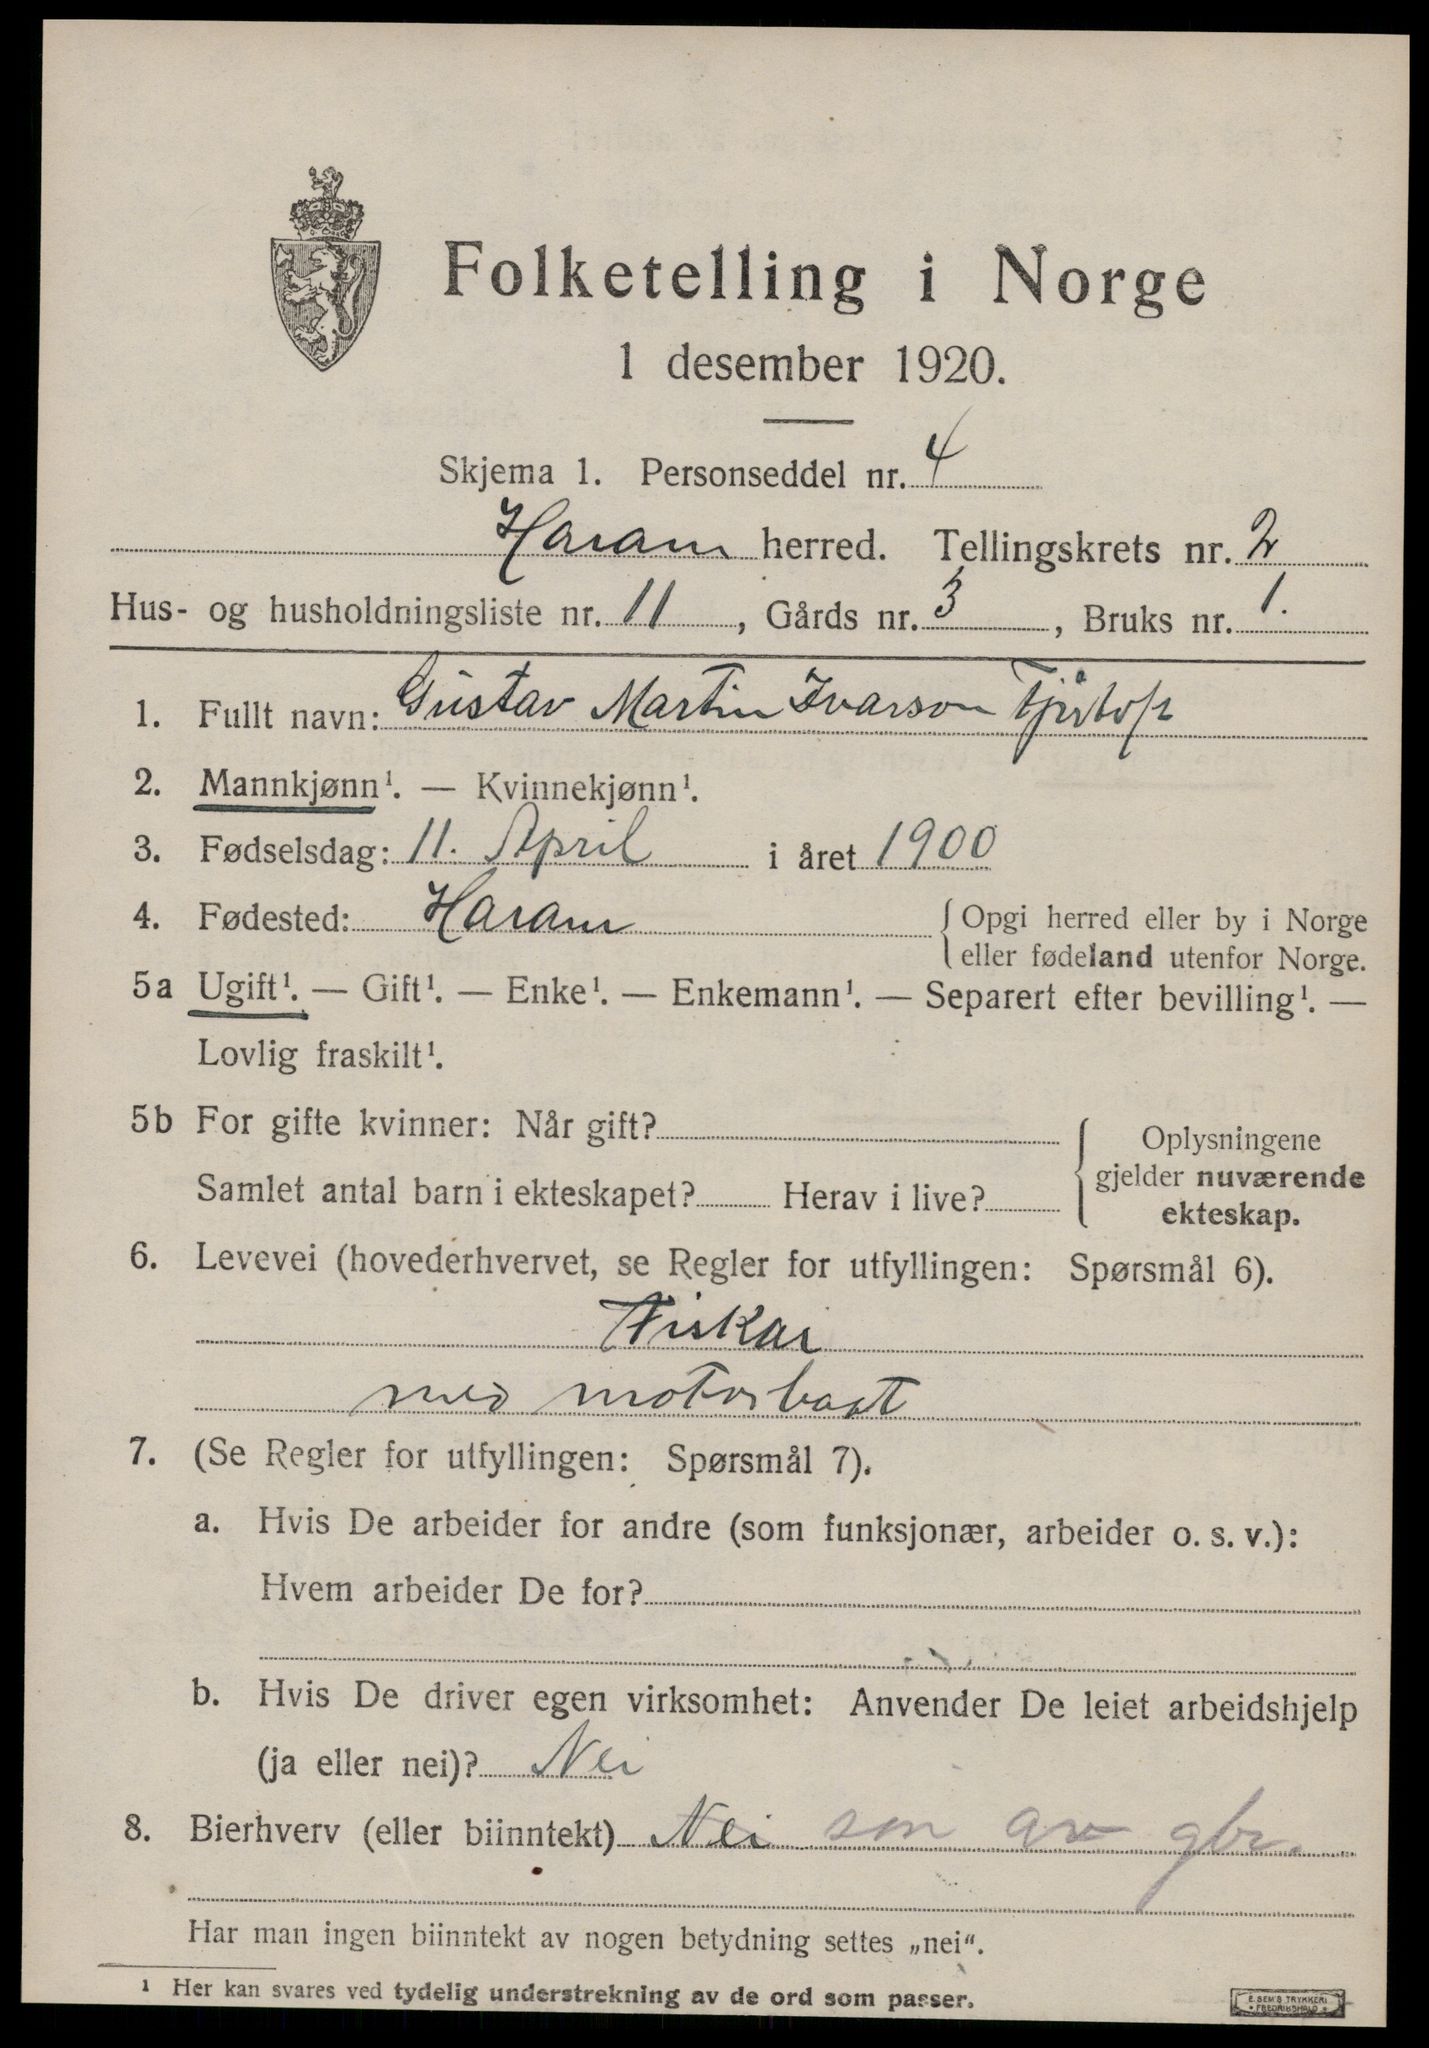 Folketelling i Norge
1 desember 1920.
Skjema 1. Personseddel nr. 4
Haram herred. Tellingskrets nr. 2
Hus- og husholdningsliste nr. 11, Gårds nr. 3, Bruks nr. 1.
1. Fullt navn: Gustav Martin Ivarson
2. Mannkjønn¹. — Kvinnekjønn¹.
3. Fødselsdag: 11. April i året 1900
4. Fødested: Haram { Opgi herred eller by i Norge
eller fødeland utenfor Norge.
5a Ugift¹. — Gift¹. — Enke¹. — Enkemann¹. — Separert efter bevilling¹. —
Lovlig fraskilt¹.
5b For gifte kvinner: Når gift?
Samlet antal barn i ekteskapet? Herav i live?
Oplysningene
gjelder nuværende
ekteskap.
6. Levevei (hovederhvervet, se Regler for utfyllingen: Spørsmål 6).
Fiskar
med motorbaat
7. (Se Regler for utfyllingen: Spørsmål 7).
a. Hvis De arbeider for andre (som funksjonær, arbeider o. s. v.):
Hvem arbeider De for?
b. Hvis De driver egen virksomhet: Anvender De leiet arbeidshjelp
(ja eller nei)? Nei
8. Bierhverv (eller biinntekt) Nei søn av gbr.
Har man ingen biinntekt av nogen betydning settes „nei“.
¹ Her kan svares ved tydelig understrekning av de ord som passer.
E. SEM'S TRYKKERI
FREDRIKSHALD